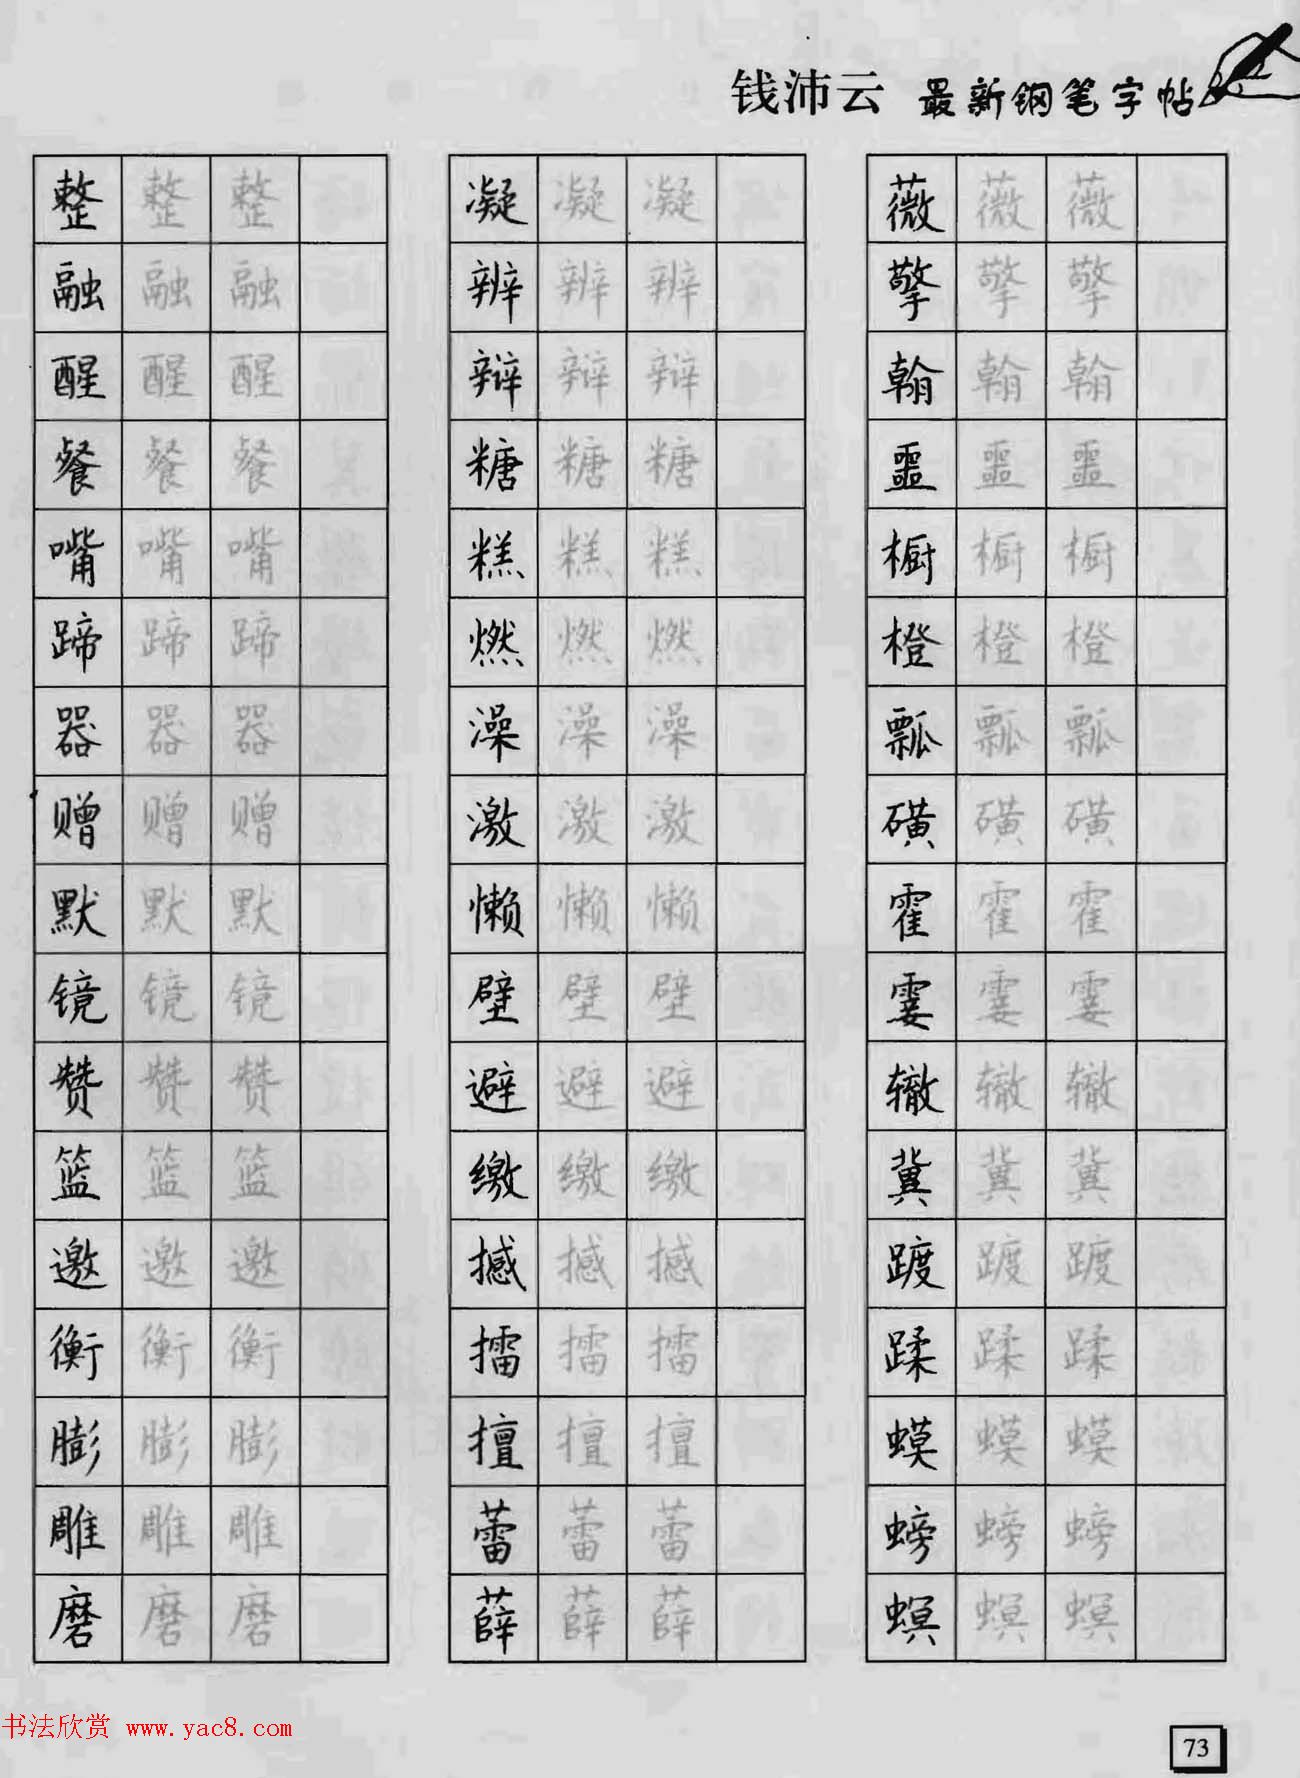 钱沛云 最新钢笔字帖
整 整 整 凝 凝 凝 薇 薇 薇
融 融 融 辨 辨 辨 擎 擎 擎
醒 醒 醒 辩 辩 辩 翰 翰 翰
餐 餐 餐 糖 糖 糖 噩 噩 噩
嘴 嘴 嘴 糕 糕 糕 橱 橱 橱
蹄 蹄 蹄 燃 燃 燃 橙 橙 橙
器 器 器 澡 澡 澡 瓢 瓢 瓢
赠 赠 赠 激 激 激 磺 磺 磺
默 默 默 懒 懒 懒 霍 霍 霍
镜 镜 镜 壁 壁 壁 霎 霎 霎
赞 赞 赞 避 避 避 辙 辙 辙
篮 篮 篮 缴 缴 缴 冀 冀 冀
邀 邀 邀 撼 撼 撼 踱 踱 踱
衡 衡 衡 擂 擂 擂 蹂 蹂 蹂
膨 膨 膨 擅 擅 擅 蟆 蟆 蟆
雕 雕 雕 蕾 蕾 蕾 螃 螃 螃
磨 磨 磨 薛 薛 薛 螟 螟 螟
书法欣赏 www.yac8.com
73